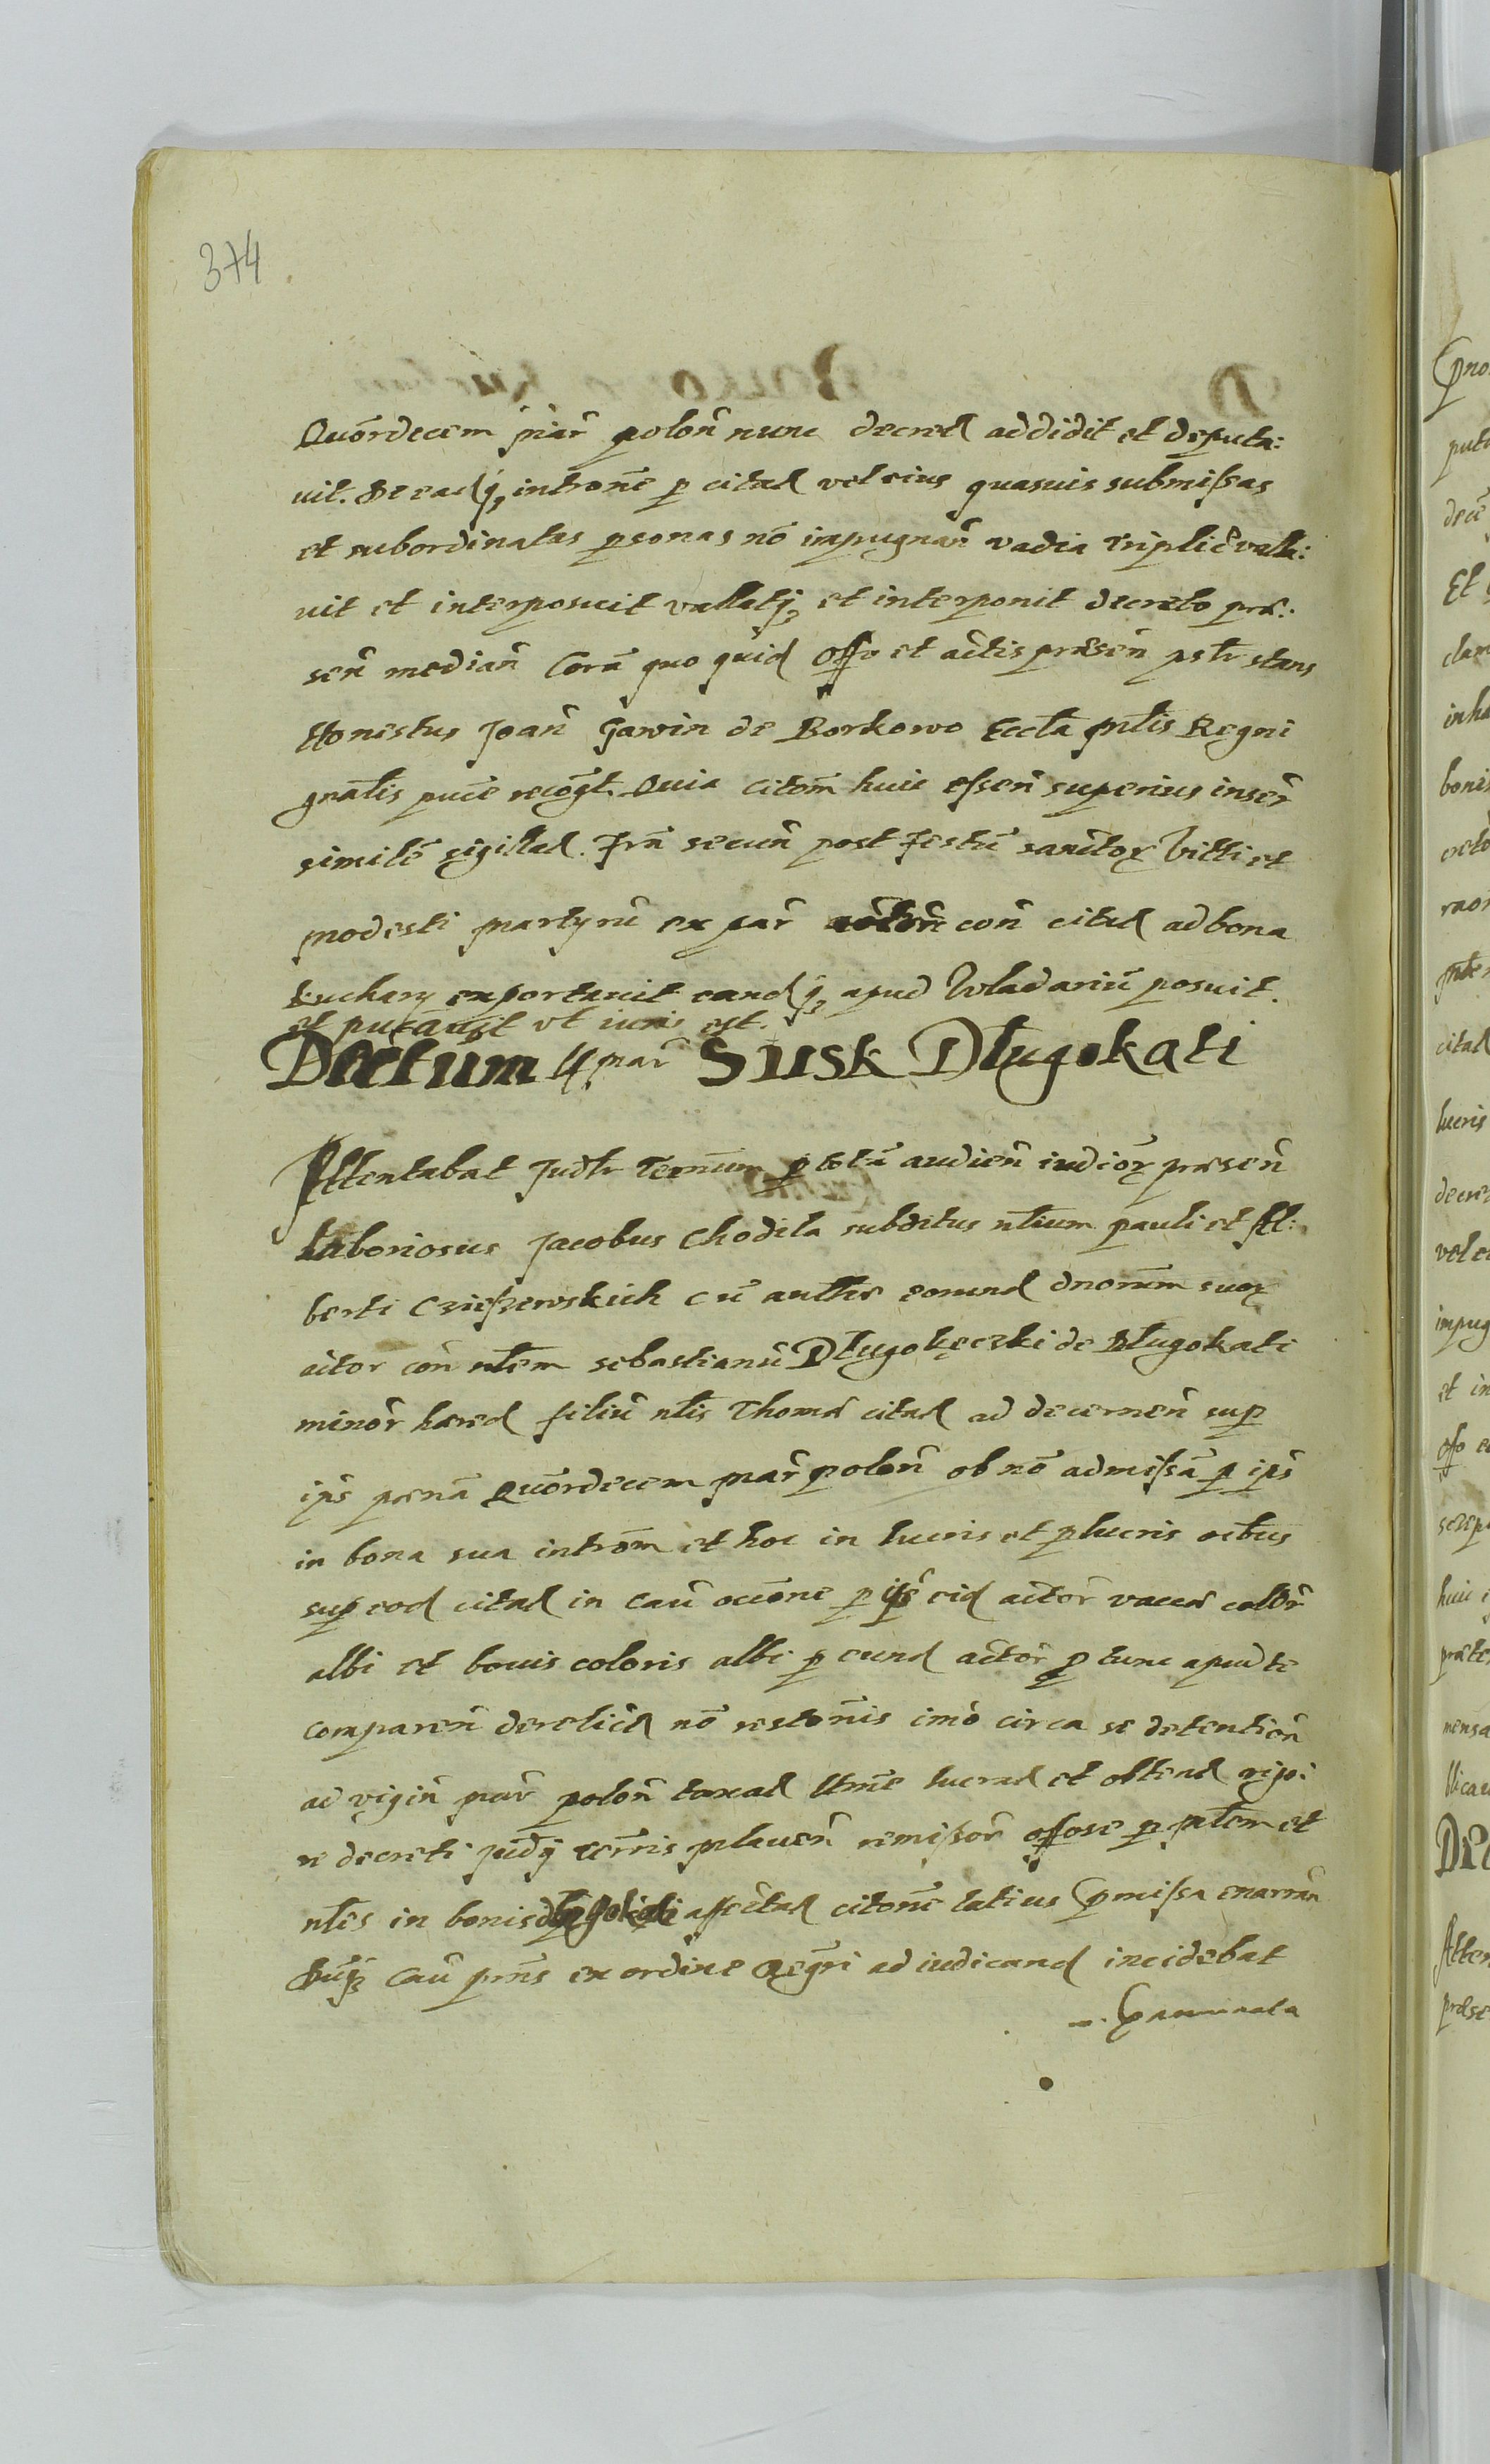 374
Quõrdecem mar̃ polon̄ nunc decret addidit et deputa:
uit. De eadq̃, introñe p citat vel eius quasuis submißas
et subordinatas psonas nõ impugnan̄ vadia triplic̃ valla:
uit et interposuit vallatq̃, et interponit decreto præ:
sen̄ median̄ Corã quo quid Offo et actis præsen̄ pstr stans
Honestus Joan̄ Gawin de Borkowo Eccła prłis Regni
gnałis puce recogt. Quia citom̄ huic essen̄ superius inser̄
similẽ sigillat. Fr̃a secun̄ post Festũ sanctoꝝ Vitti et
modesti martyrũ ex par̃ actor̄ con̄ citat ad bona
Kuchary exportauit eandq̃, apud Wladariũ posuit.
et putauit vt iuris est.
Drẽtum 4 mar̃ Susk Długokati
Attentabat Judłr Termum p totã audien̄ iudioꝝ præsen̄
Laboriosus Jacobus Chodila subditus nłium pauli et Al:
berti Czießewskich cũ authe eorund dnorum̄ suoꝝ
actor con̄ nłem sebastianũ Długokęczki de Długokati
minor̄ hæred filiũ nłis Thomæ citat ad decernen̄ sup
ips pænã Quõrdecem mar̃ polon̄ ob nõ admißã p ips
in bona sua introm̄ et hoc in lucris et plucris octbus
sup eod citat in cau occõne p ips eid actor̄ vaccæ color̄
albi et bouis coloris albi p eund actor̄ p tunc apud te
comparen̄ derelict nõ restonis imò circa se detention̄
ad vigin̄ mar̃ polon̄ taxat Utme lucrat et obtent vigo:
re decreti Judij terris plauen̄ remißor̄ offose p młem et
nłes in bonis Długokati affectat citone latius Pmißa enarran̄
Dumq̃ Cau prns ex ordine Regri ad iudicand incidebat